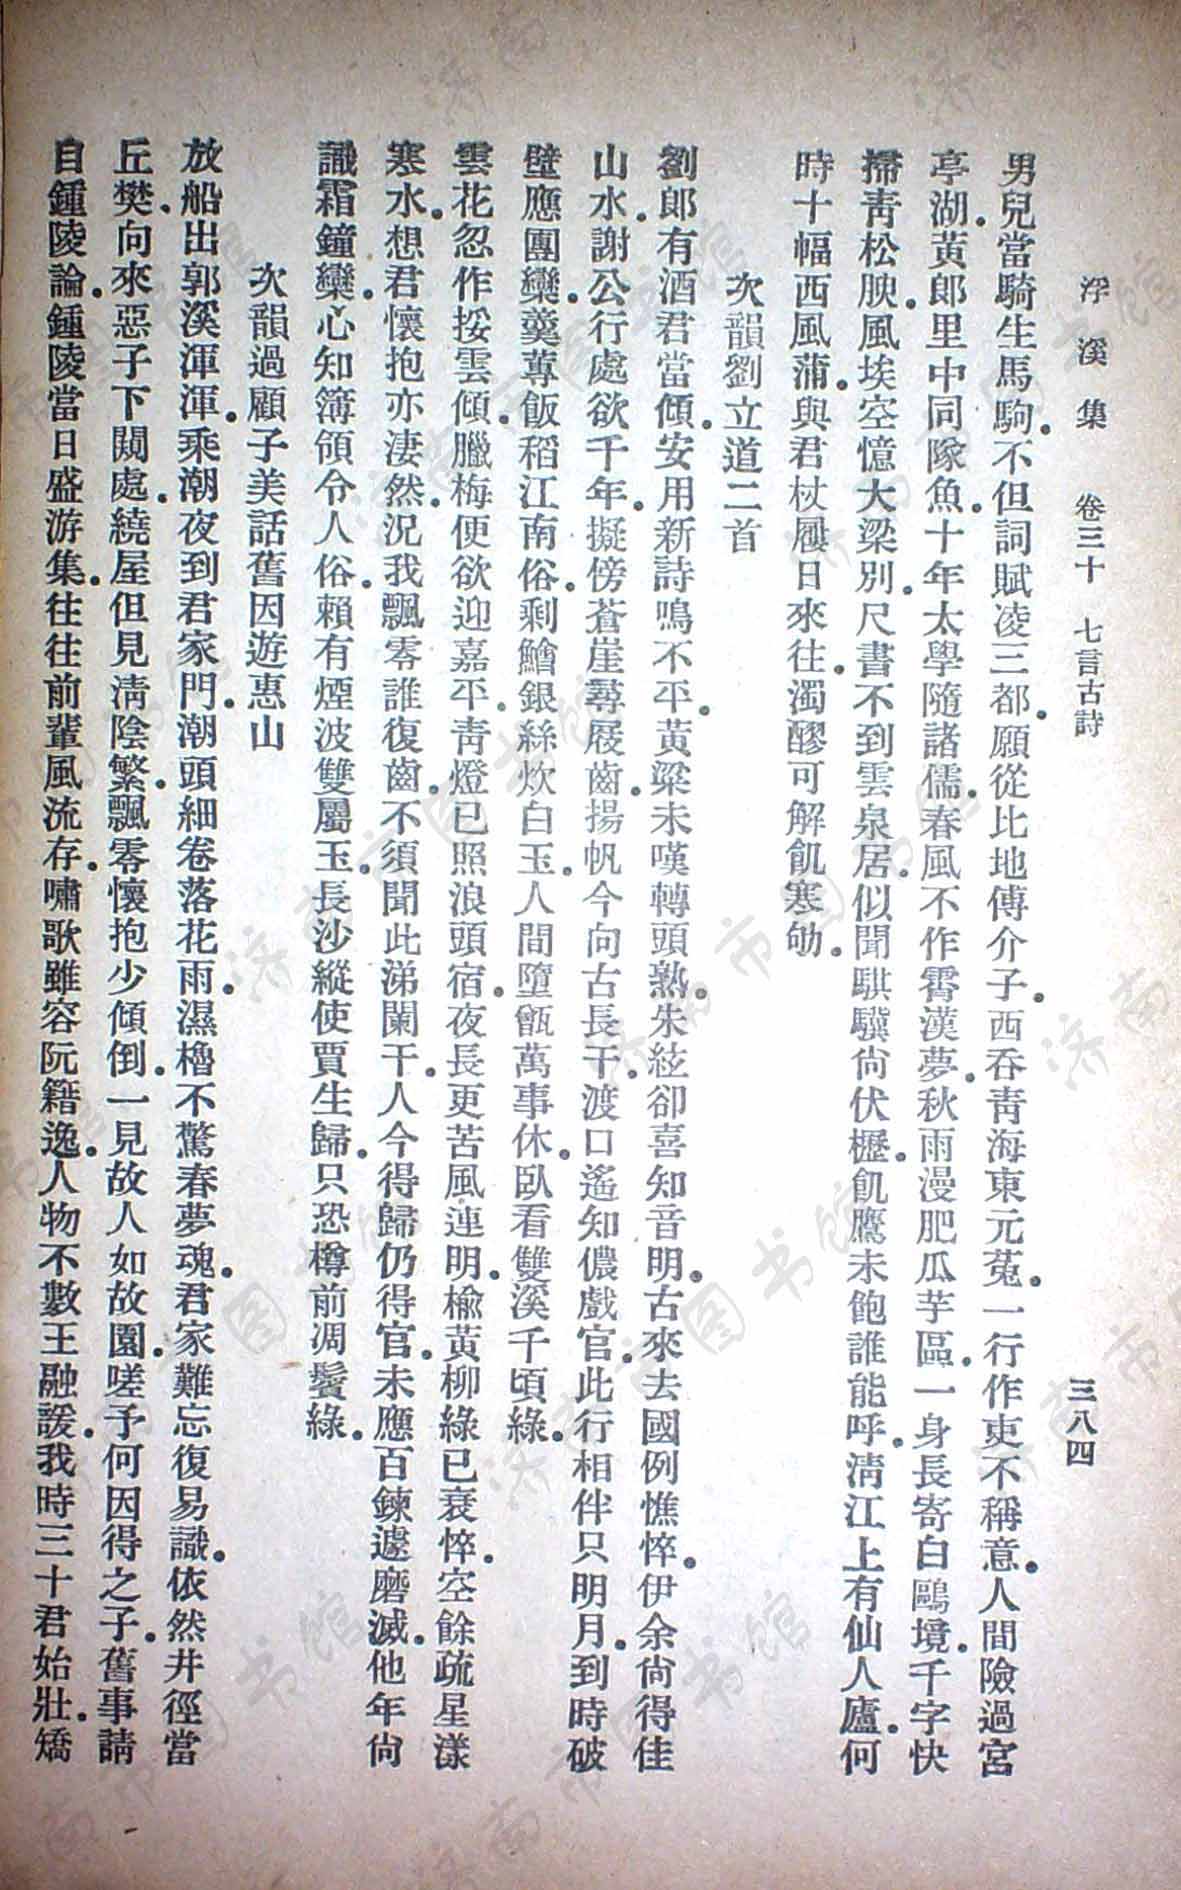 浮溪集 卷三十 七言古詩 三八四
男兒當騎生馬駒。不但詞賦凌三都。願從比地傅介子。西吞靑海東元菟。一行作吏不稱意。人間險過宮
亭湖。黃郎里中同隊魚。十年太學隨諸儒。春風不作霄漢夢。秋雨漫肥瓜芋區。一身長寄白鷗境。千字快
掃靑松腴。風埃空憶大梁別。尺書不到雲泉居。似聞騏驥尙伏櫪。飢鷹未飽誰能呼。淸江上有仙人廬。何
時十幅西風蒲。與君杖屨日來往。濁醪可解飢寒劬。
次韻劉立道二首
劉郎有酒君當傾。安用新詩鳴不平。黃粱未嘆轉頭熟。朱絃卻喜知音明。古來去國例憔悴。伊余尙得佳
山水。謝公行處欲千年。擬傍蒼崖尋屐齒。揚帆今向古長干。渡口遙知儂戲官。此行相伴只明月。到時破
壁應團欒。羹蓴飯稻江南俗。剩鱠銀絲炊白玉。人間墮甑萬事休。臥看雙溪千頃綠。
雲花忽作挼雲傾。臘梅便欲迎嘉平。靑燈已照浪頭宿。夜長更苦風連明。榆黃柳綠已衰悴。空餘疏星漾
寒水。想君懷抱亦凄然。況我飄零誰復齒。不須聞此涕闌干。人今得歸仍得官。未應百鍊遽磨滅。他年尙
識霜鐘欒。心知簿領令人俗。賴有煙波雙屬玉。長沙縱使賈生歸。只恐樽前凋鬢綠。
次韻過顧子美話舊因遊惠山
放船出郭溪渾渾。乘潮夜到君家門。潮頭細卷落花雨。濕櫓不驚春夢魂。君家難忘復易識。依然井徑當
丘樊。向來惡子下闥處。繞屋但見淸陰繁。飄零懷抱少傾倒。一見故人如故園。嗟予何因得之子。舊事請
自鍾陵論。鍾陵當日盛游集。往往前輩風流存。嘯歌雖容阮籍逸。人物不數王融諼。我時三十君始壯。矯